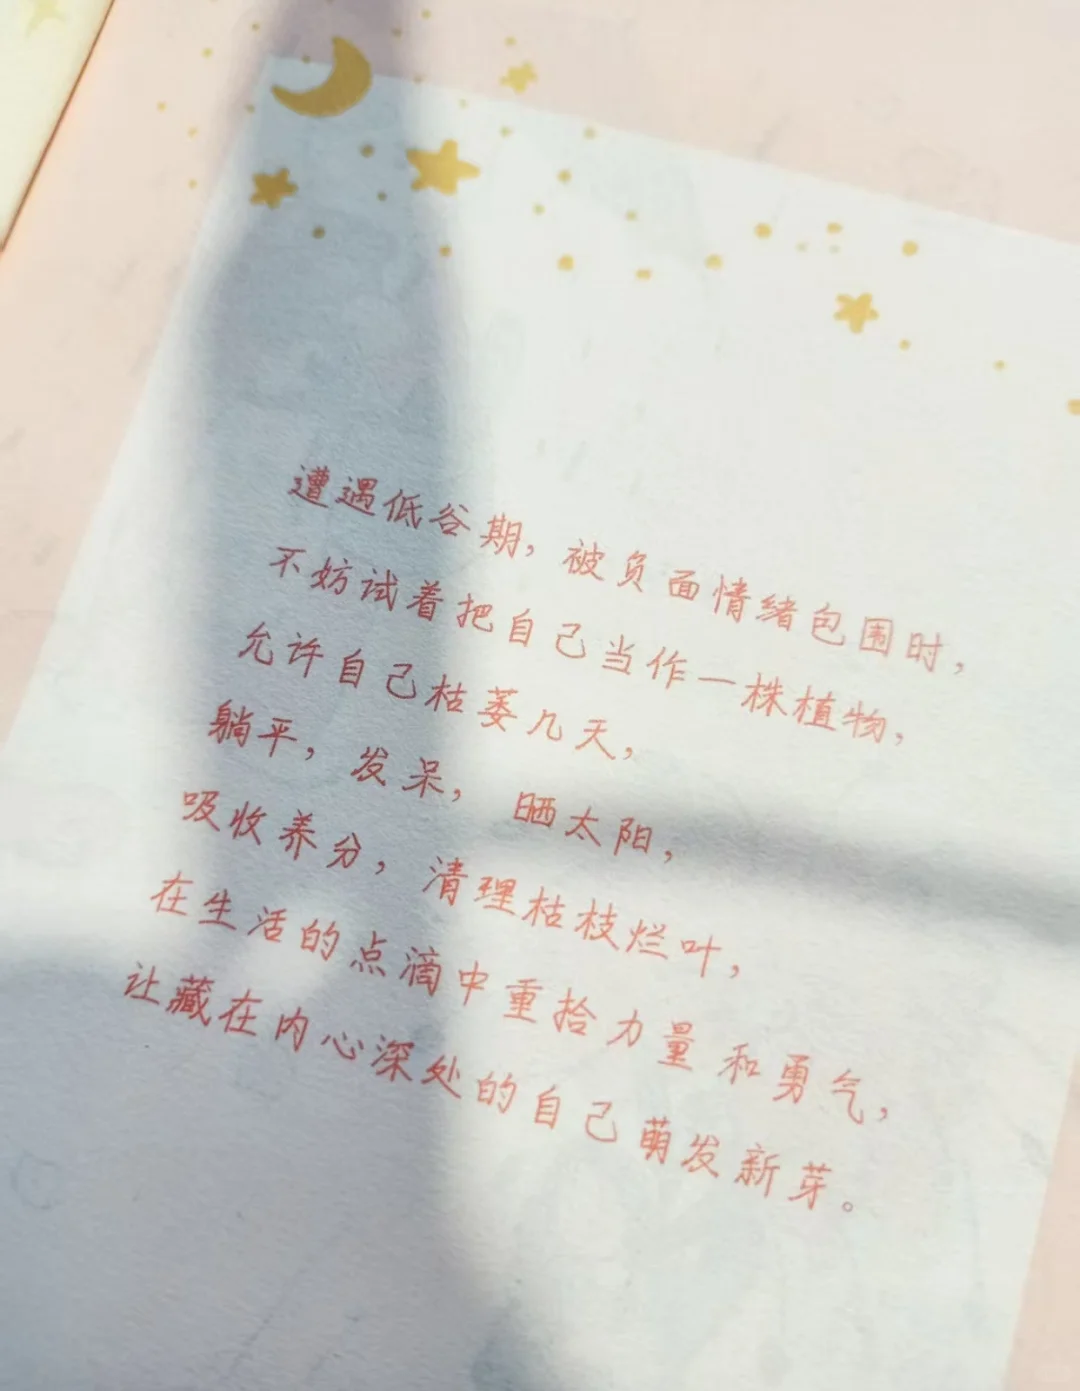 遭遇低谷期，被负面情绪包围时，
不妨试着把自己当作一株植物，
允许自己枯萎几天，
躺平，发呆，晒太阳，
吸收养分，清理枯枝烂叶，
在生活的点滴中重拾力量和勇气，
让藏在内心深处的自己萌发新芽。